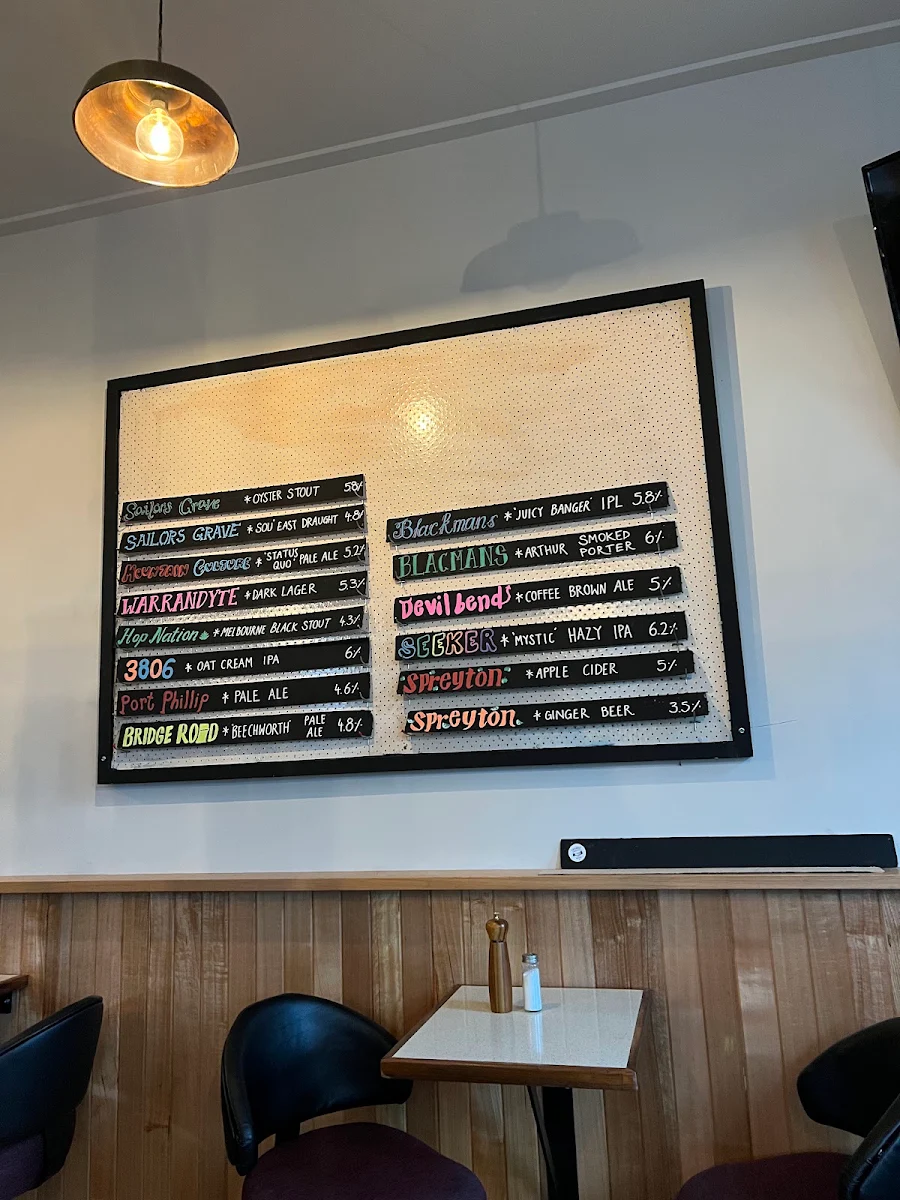 Sailors Grave * OYSTER STOUT 5.8%
SAILORS GRAVE * SOU' EAST DRAUGHT 4.8%
MOUNTAIN CULTURE * 'STATUS QUO' PALE ALE 5.2%
WARRANDYTE * DARK LAGER 5.3%
Hop Nation * MELBOURNE BLACK STOUT 4.3%
3806 * OAT CREAM IPA 6%
Port Phillip * PALE ALE 4.6%
BRIDGE ROAD * 'BEECHWORTH' PALE ALE 4.8%
Blackmans * 'JUICY BANGER' IPL 5.8%
BLACMANS * ARTHUR SMOKED PORTER 6%
Devil bends * COFFEE BROWN ALE 5%
SEEKER * 'MYSTIC' HAZY IPA 6.2%
Spreyton * APPLE CIDER 5%
Spreyton * GINGER BEER 3.5%